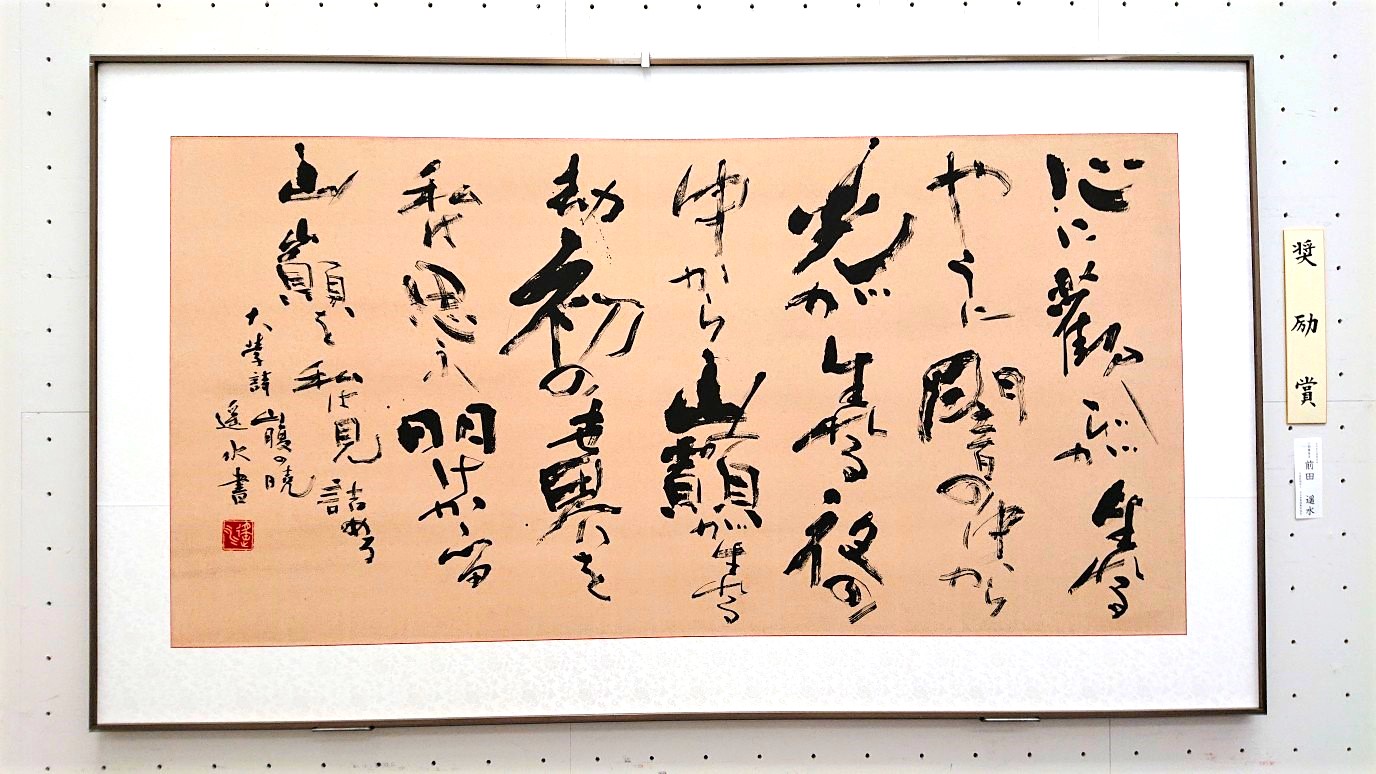 心に歡びが生れる
やうに闇の中から
光が生れる夜の
中から山巓が生れる
劫初の世界を
私は思ふ明けかゝ留
山巓を私は見詰める
大學詩 山腹の暁
遥水書
奨励賞
前田 遥水